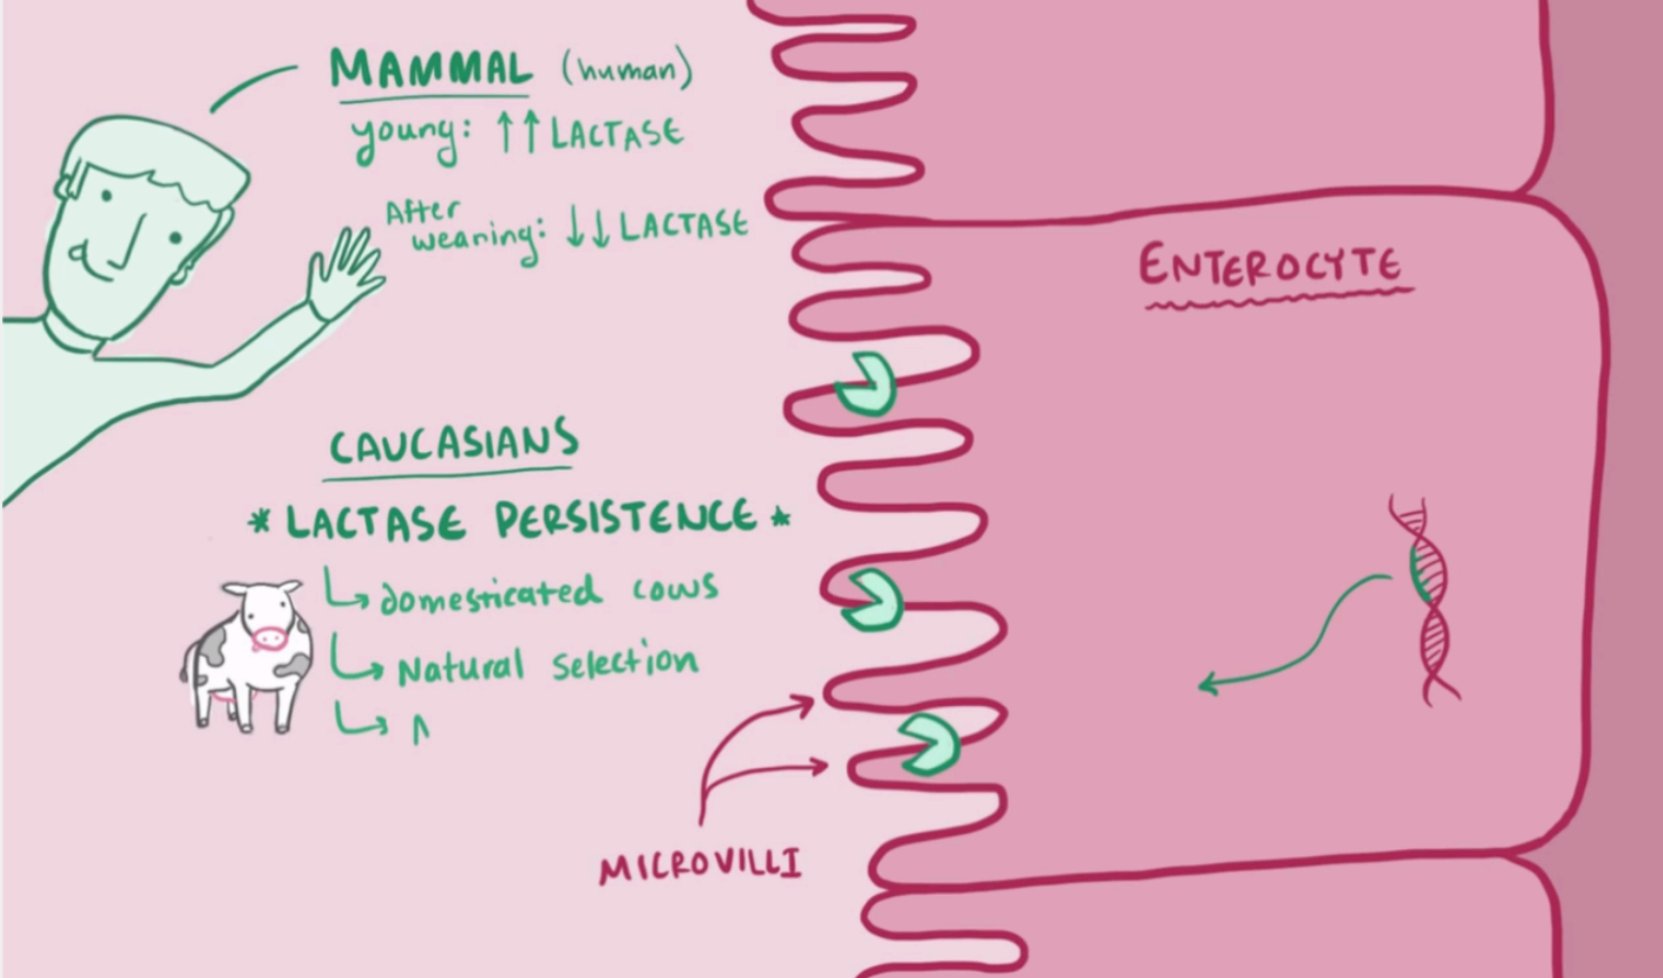 MAMMAL (human)
young: ↑↑ LACTASE
After
weaning: ↓↓ LACTASE
ENTEROCYTE
CAUCASIANS
* LACTASE PERSISTENCE *
domesticated cows
Natural selection
MICROVILLI